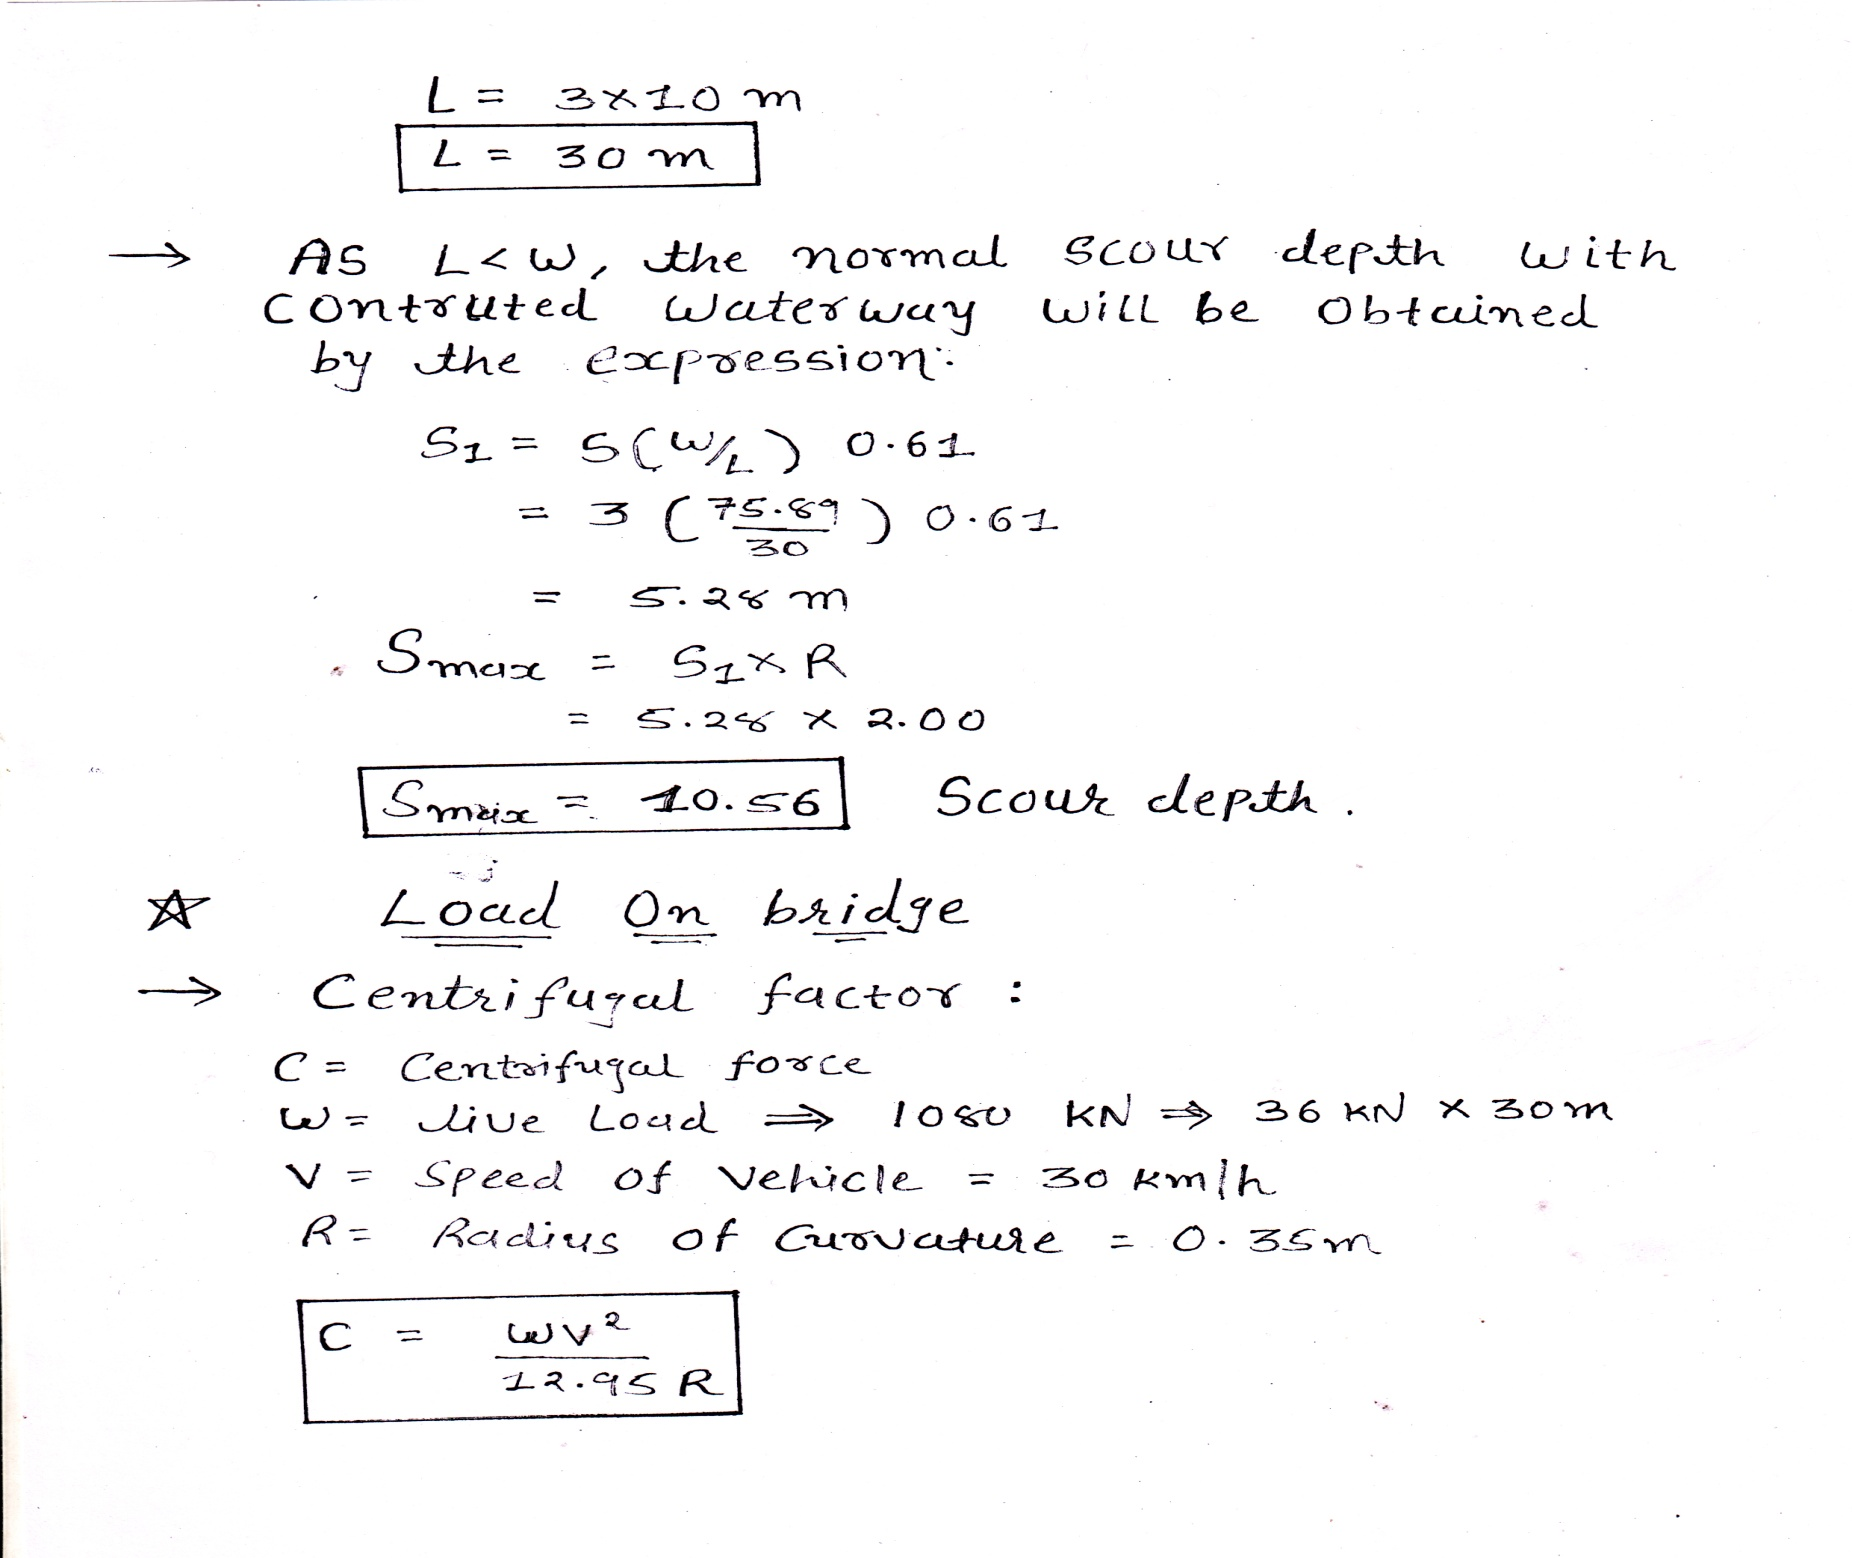 L = 3×10 m
L = 30 m
→ As L<W, the normal scour depth with
contruted waterway will be obtained
by the expression:
S1 = S(W/L) 0.61
= 3 (75.89/30) 0.61
= 5.28 m
Smax = S1×R
= 5.28 × 2.00
Smax = 10.56 Scour depth.
☆ Load On bridge
→ Centrifugal factor :
C = Centrifugal force
W = live Load ⇒ 1080 KN ⇒ 36 KN × 30m
V = Speed of Vehicle = 30 km/h
R = Radius of Curvature = 0.35m
C = WV²/12.95 R